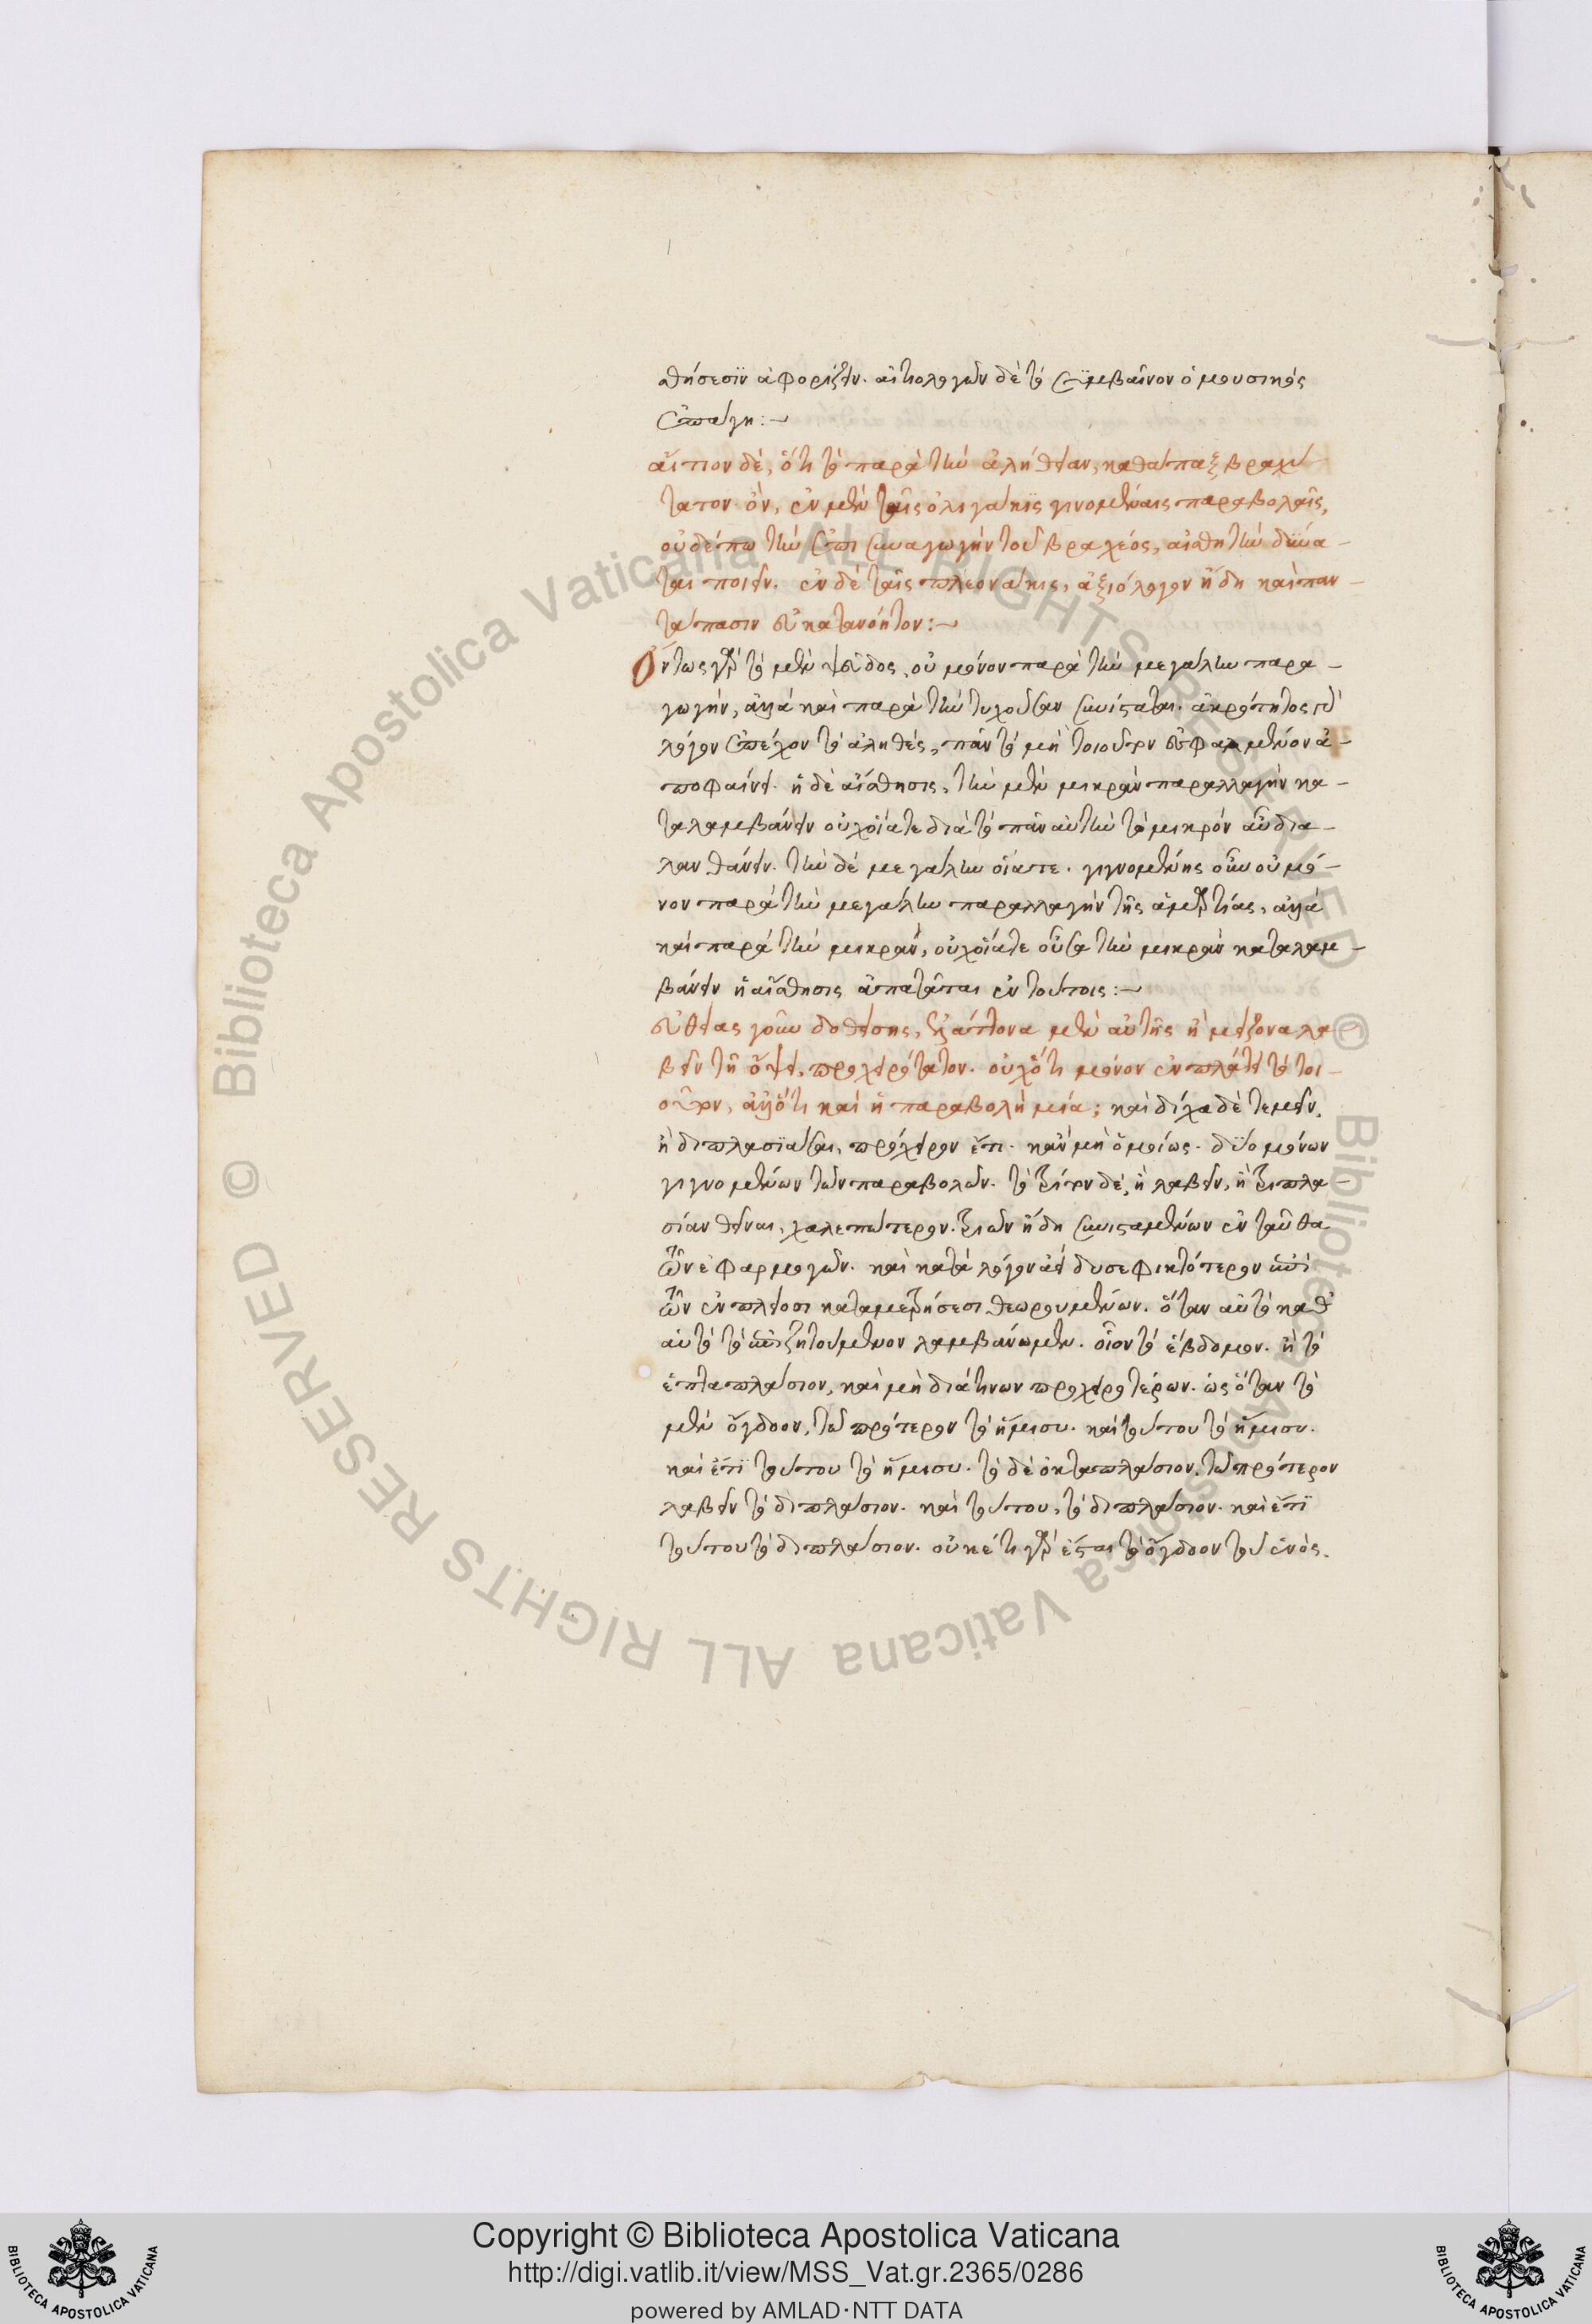 θήσεσϊν ἀφορίζειν. αἰτιολογῶν δὲ τὸ συμβαῖνον ὁ μουσικὸς
ἐπάγει :~
αἴτιον δὲ, ὅτι τὸ παρὰ τὴν ἀλήθειαν, καθάπαξ βραχύ
τατον ὂν, ἐν μὲν ταῖς ὀλιγάκις γινομέναις παραβολαῖς,
οὐδέπω τὴν ἐπισυναγωγὴν τοῦ βραχέος, αἰσθητὴν δύνα-
ται ποιεῖν. ἐν δὲ ταῖς πλεονάκις, ἀξιόλογον ἤδη καὶ παν-
τάπασιν εὐκατανόητον :~
Ὄντως γὰρ τὸ μὲν ψεῦδος, οὐ μόνον παρὰ τὴν μεγάλην παρα-
γωγὴν, ἀλλὰ καὶ παρὰ τὴν τυχοῦσαν συνίσταται. ἀκρότητος γὰρ
λόγον ἐπέχον τὸ ἀληθὲς, πᾶν τὸ μὴ τοιοῦτον ἐσφαλμένον ἀ-
ποφαίνει. ἡ δὲ αἴσθησις, τὴν μὲν μικρὰν παραλλαγὴν κα-
ταλαμβάνειν οὐχ οἵα τε διὰ τὸ πᾶν αὐτὴν τὸ μικρὸν ἂν δια-
λανθάνειν. τὴν δὲ μεγάλην οἵα τε. γιγνομένης οὖν οὐ μό-
νον παρὰ τὴν μεγάλην παραλλαγὴν τῆς ἁμαρτίας, ἀλλὰ
καὶ παρὰ τὴν μικρὰν, οὐχ οἵα τε οὖσα τὴν μικρὰν καταλαμ-
βάνειν ἡ αἴσθησις ἀπατᾶται ἐν τούτοις :~
εὐθείας γοῦν δοθείσης, ἐλάττονα μὲν αὐτῆς ἢ μείζονα λα
βεῖν τῇ ὄψει, προχειρότατον. οὐχ ὅτι μόνον ἐν πλάτει τὸ τοι-
οῦτον, ἀλλ' ὅτι καὶ ἡ παραβολὴ μία; καὶ δίχα δὲ τεμεῖν.
ἢ διπλασϊάσαι, πρόχειρον ἔτι. κᾂν μὴ ὁμοίως. δύο μόνων
γιγνομένων τῶν παραβολῶν. τὸ τρίτον δὲ, ἢ λαβεῖν, ἢ τριπλα-
σίαν θεῖναι, χαλεπώτερον. τριῶν ἤδη συνισταμένων ἐνταῦθα
τῶν ἐφαρμογῶν. καὶ κατὰ λόγον ἀεὶ δυσεφικτότερον ἐπὶ
τῶν ἐν πλείοσι καταμετρήσεσι θεωρουμένων. ὅταν αὐτὸ καθ'
αὑτὸ τὸ ἐπιζητούμενον λαμβάνωμεν. οἷον τὸ ἕβδομον. ἢ τὸ
ἑπταπλάσιον, καὶ μὴ διά τινων προχειροτέρων. ὡς ὅταν τὸ
μὲν ὄγδοον, τῷ πρότερον τὸ ἥμισυ. καὶ τούτου τὸ ἥμισυ.
καὶ ἔτϊ τούτου τὸ ἥμισυ. τὸ δὲ ὀκταπλάσιον, τῷ πρότερον
λαβεῖν τὸ διπλάσιον. καὶ τούτου, τὸ διπλάσιον. καὶ ἔτϊ
τούτου τὸ διπλάσιον. οὐκέτι γὰρ ἔσται τὸ ὄγδοον τοῦ ἑνὸς.
Biblioteca Apostolica Vaticana ALL RIGHTS RESERVED ©
Biblioteca Apostolica Vaticana ALL RIGHTS RESERVED ©
Copyright © Biblioteca Apostolica Vaticana
http://digi.vatlib.it/view/MSS_Vat.gr.2365/0286
powered by AMLAD·NTT DATA
BIBLIOTECA APOSTOLICA VATICANA
BIBLIOTECA APOSTOLICA VATICANA